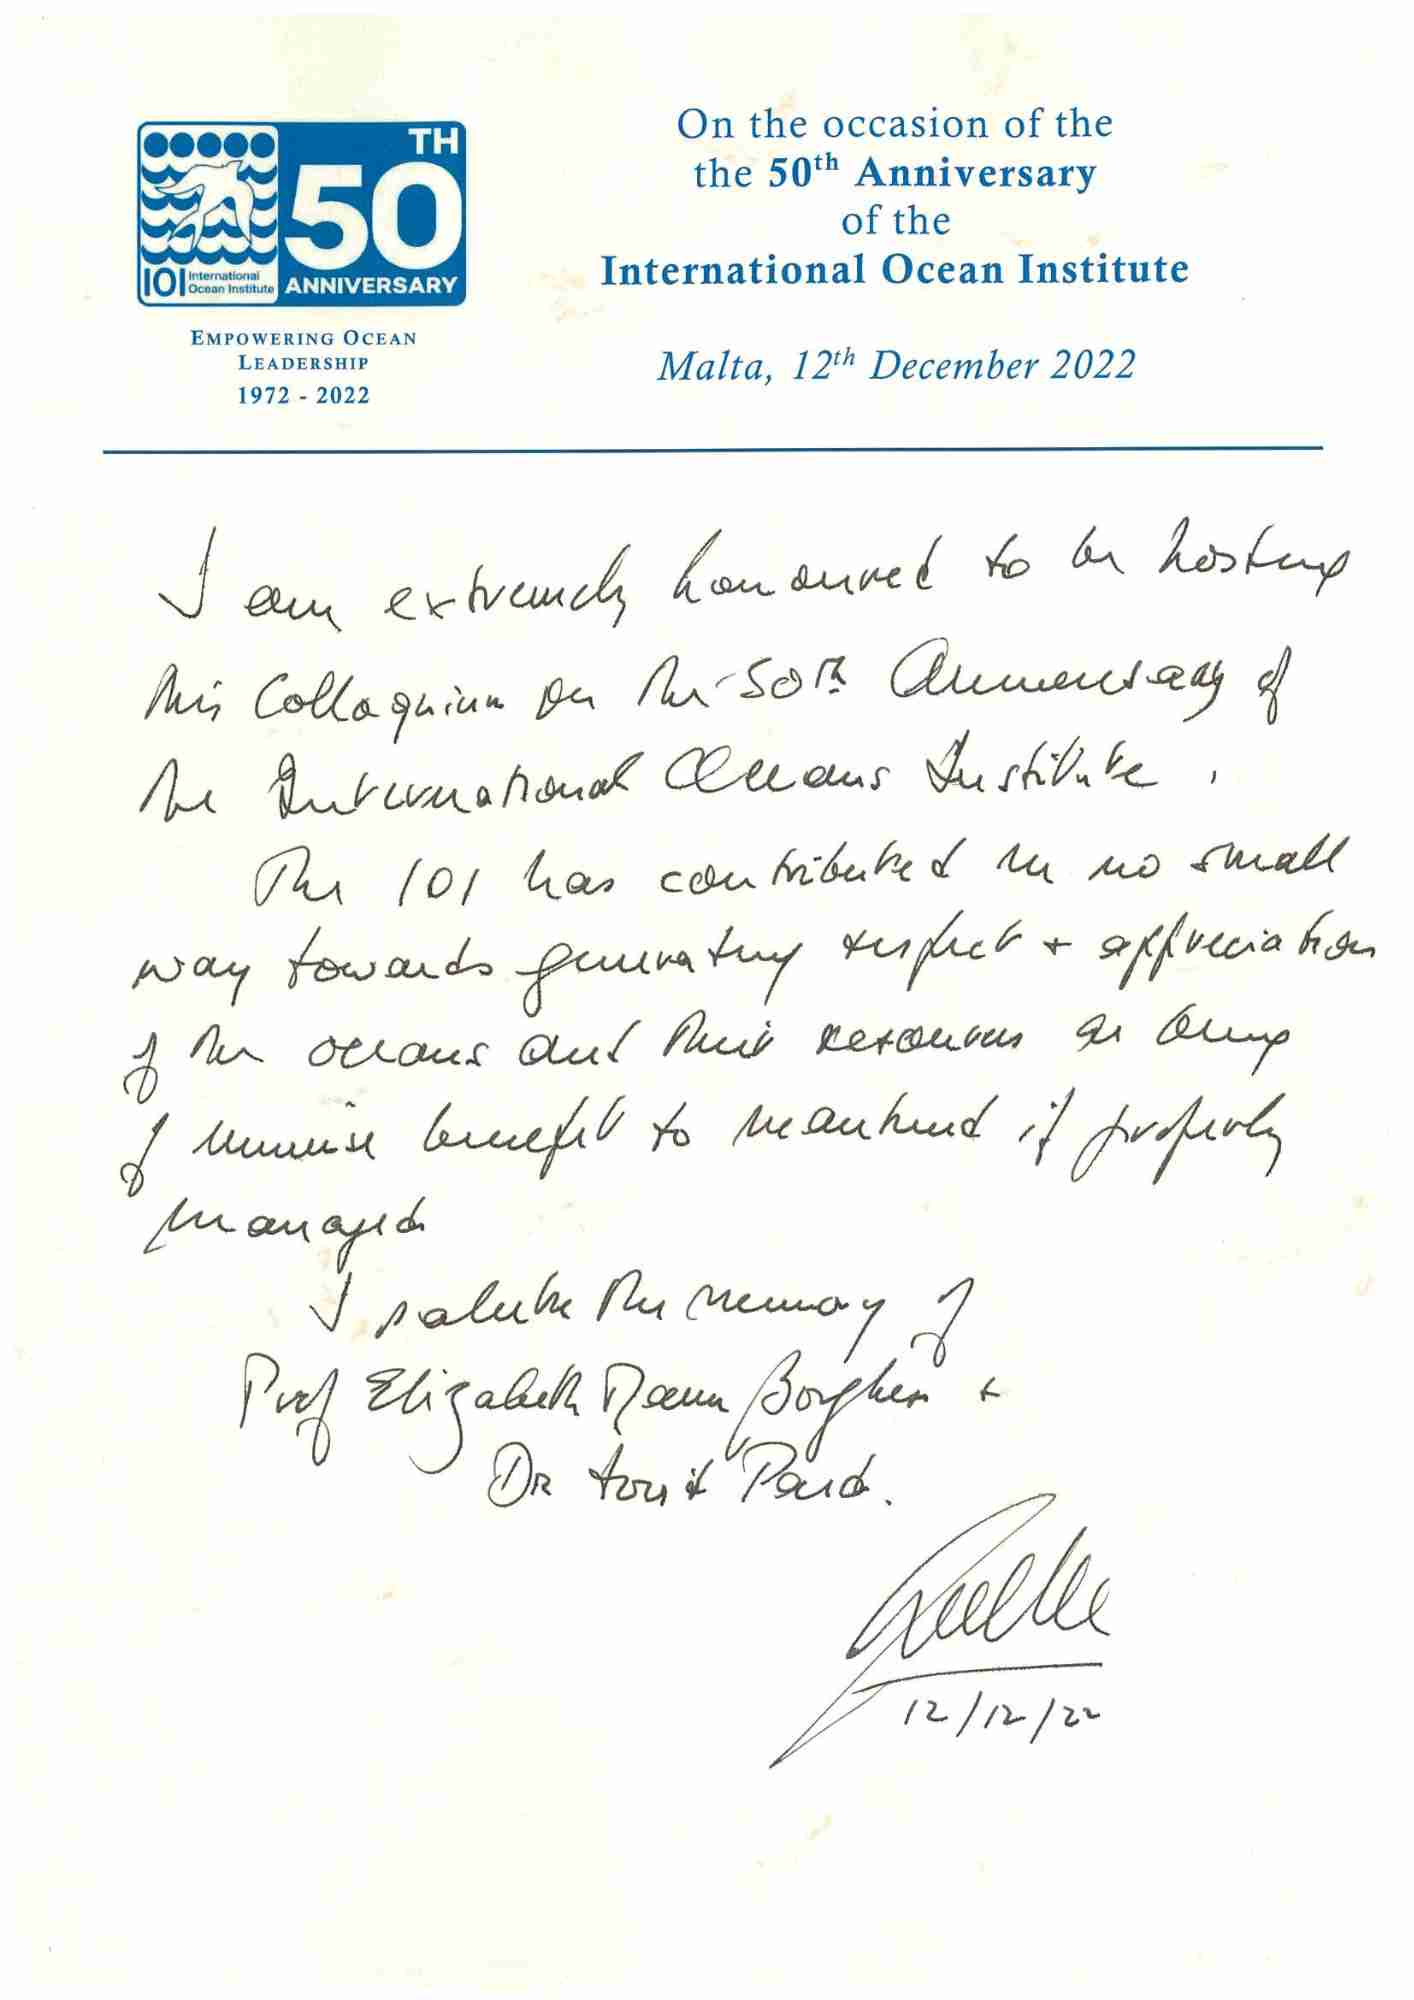 TH
50
ANNIVERSARY
IOI International
Ocean Institute
EMPOWERING OCEAN
LEADERSHIP
1972 - 2022
On the occasion of the
the 50th Anniversary
of the
International Ocean Institute
Malta, 12th December 2022
I am extremely honoured to be hosting
this Colloquium on the 50th Anniversary of
the International Oceans Institute.
The IOI has contributed in no small
way towards generating respect + appreciation
of the oceans and their resources as being
of immense benefit to mankind if properly
managed
I salute the memory of
Prof Elizabeth Mann Borghese +
Dr Arvid Pardo.
12/12/22